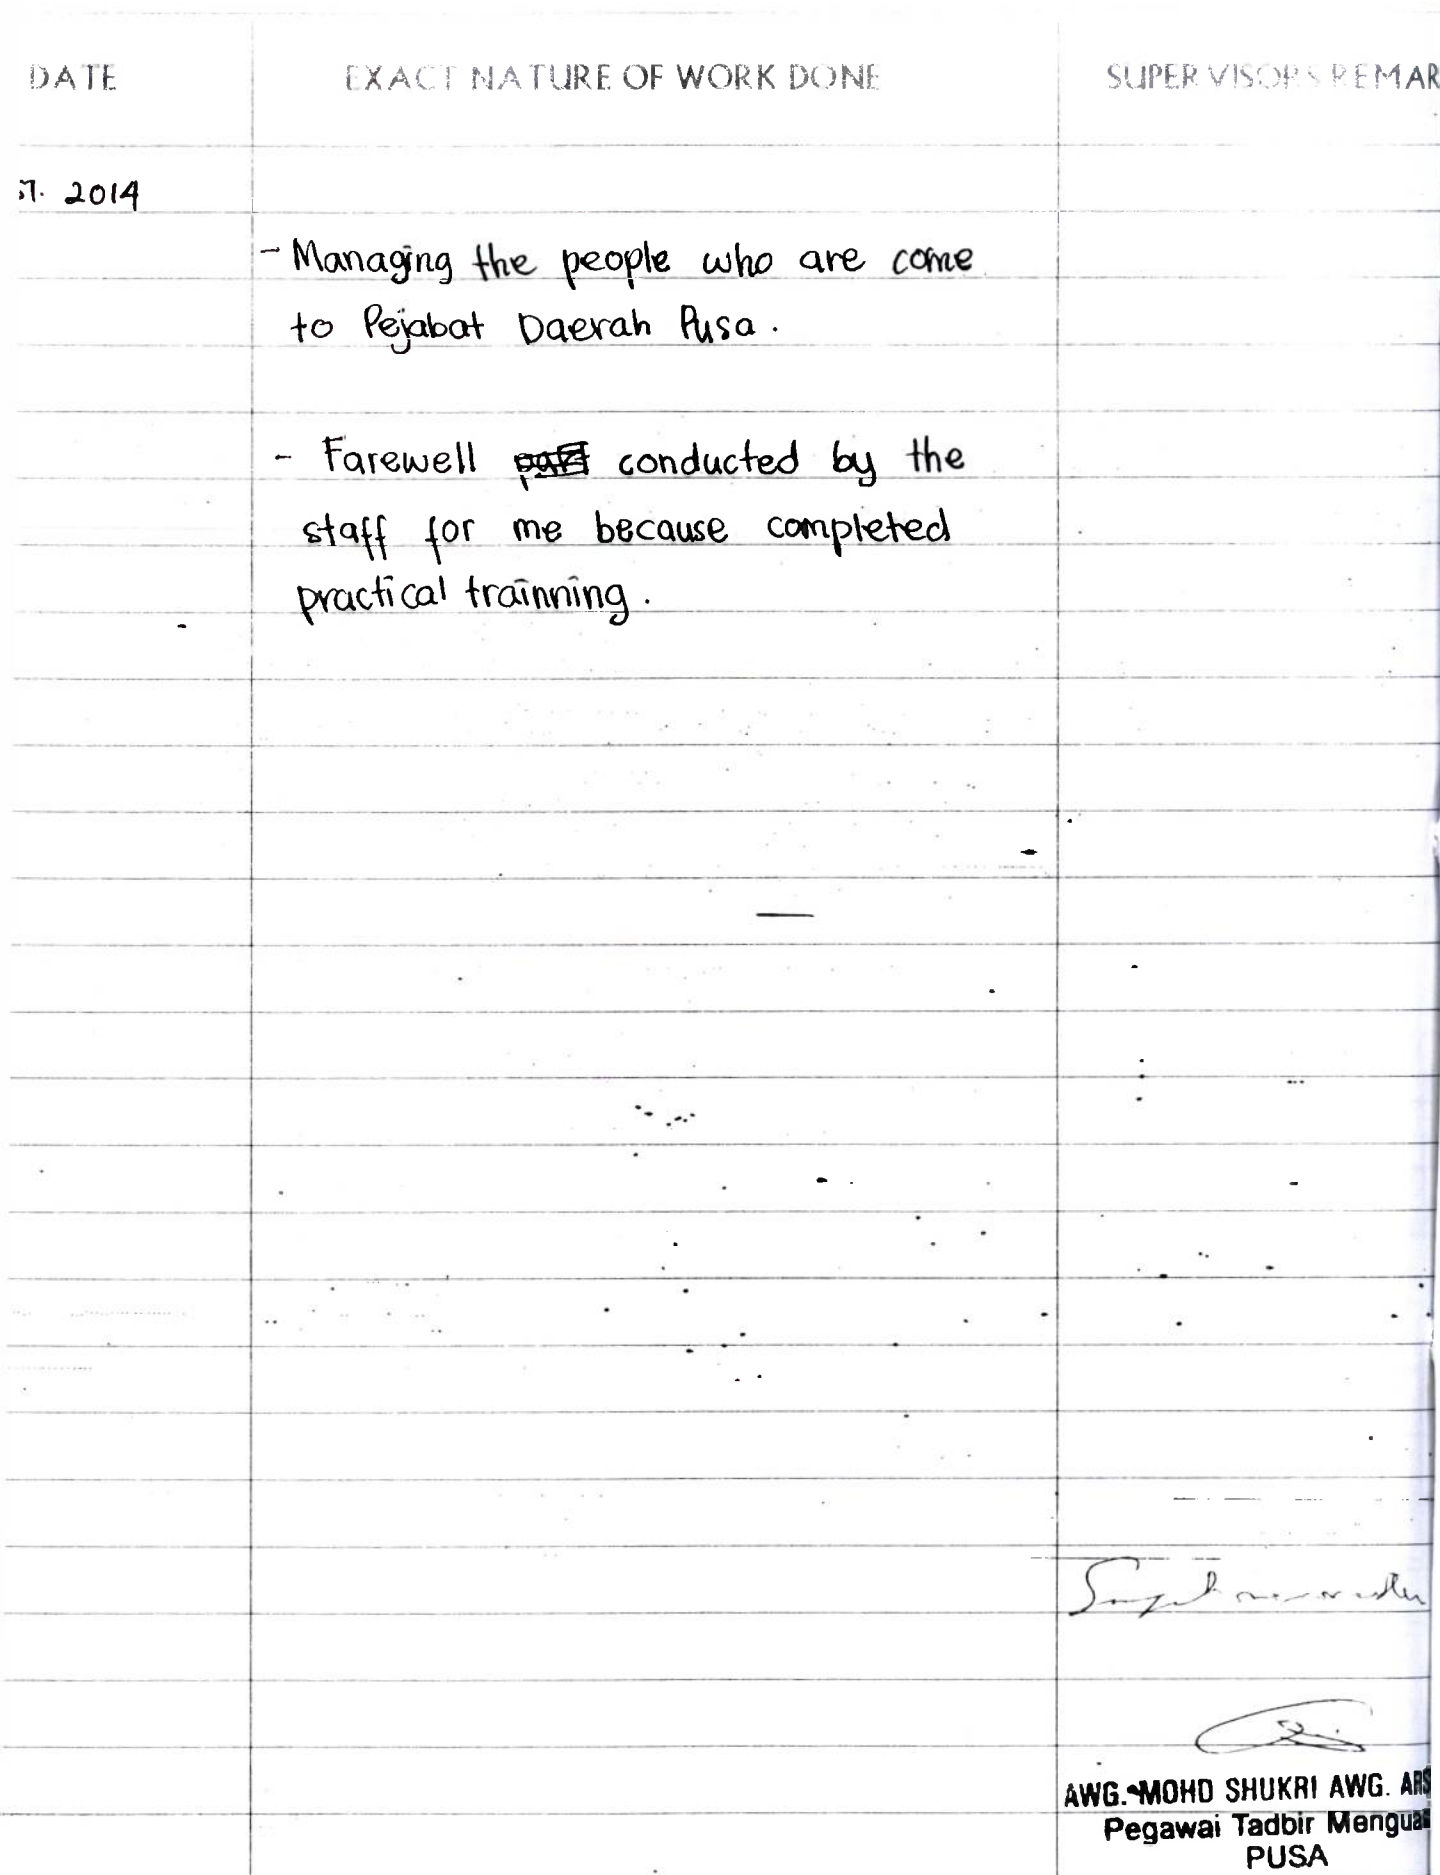 DATE EXACT NATURE OF WORK DONE SUPERVISORS REMAR
2014
- Managing the people who are come
to Pejabat Daerah Pusa.
- Farewell conducted by the
staff for me because completed
practical trainning.
AWG. MOHD SHUKRI AWG. ARS
Pegawai Tadbir Mengua
PUSA